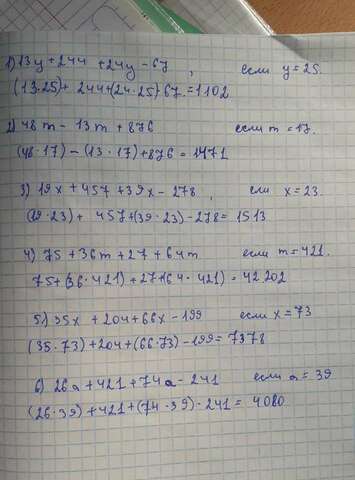 1) 13y + 244 + 24y - 67, если y = 25.
(13·25) + 244 + (24·25) - 67 = 1102
2) 48m - 13m + 876 если m = 17.
(48·17) - (13·17) + 876 = 1471
3) 19x + 457 + 39x - 278, если x = 23.
(19·23) + 457 + (39·23) - 278 = 1513
4) 75 + 36m + 27 + 64m если m = 421.
75 + (36·421) + 27 + (64·421) = 42.202
5) 35x + 204 + 66x - 199 если x = 73
(35·73) + 204 + (66·73) - 199 = 7378
6) 26a + 421 + 74a - 241 если a = 39
(26·39) + 421 + (74·39) - 241 = 4080